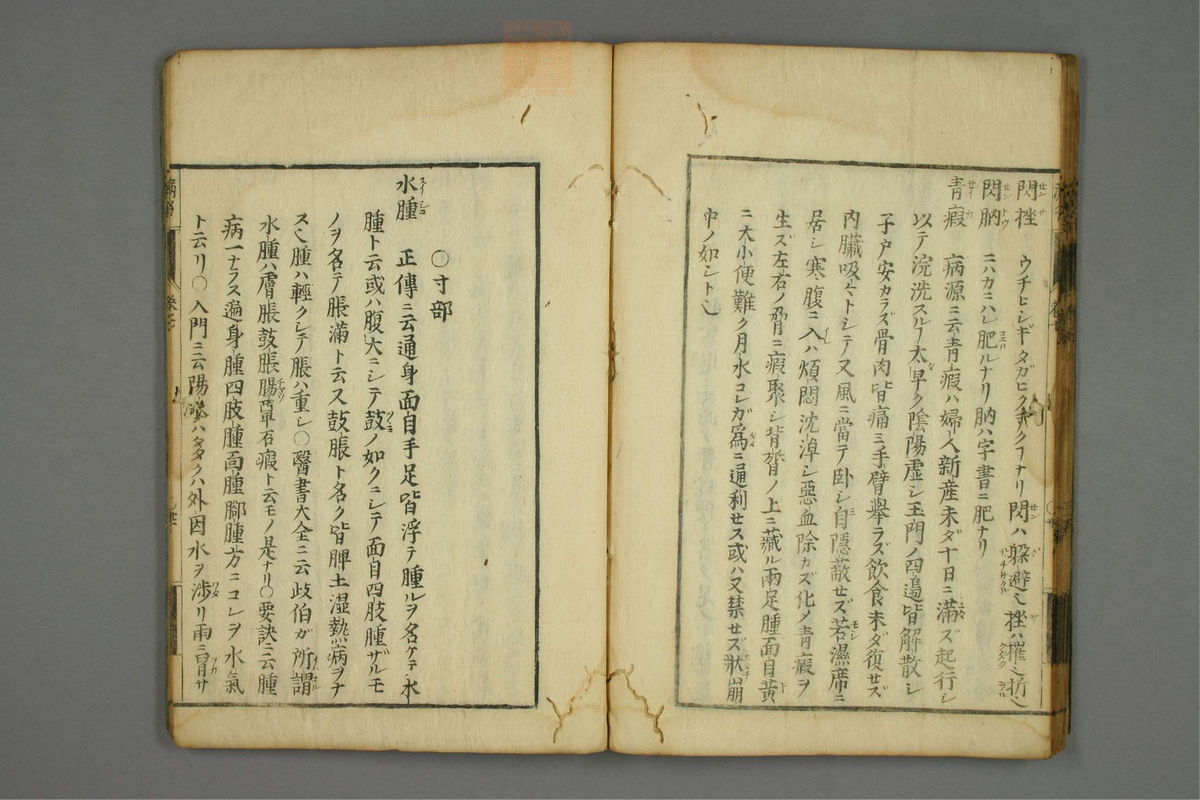 閃挫 ウチヒシギタガヒクヂクフナリ閃ハ躱避也挫ハ摧也折也
閃朒 ニハカニハレ肥ルナリ朒ハ字書ニ肥ナリ
青瘕 病源ニ云青瘕ハ婦人新産未ダ十日ニ滿ズ起行シ
以テ浣洗スルフ太早ク陰陽虚シ玉門ノ四邉皆解散シ
子戸安カラズ骨肉皆痛ミ手臂舉ラズ飲食未ダ復セズ
内臟吸々トシテ又風ニ當テ卧シ自隱蔽セズ若濕席ニ
居シ寒腹ニ入ハ煩悶沈淖シ惡血除カズ化メ青瘕ヲ
生ズ左右ノ脅ニ瘕聚シ背膂ノ上ニ藏ル兩足腫面目黄
ニ大小便難ク月水コレガ爲ニ通利せス或ハ又禁せズ狀崩
中ノ如シト也
〇寸部
水腫 正傳ニ云通身面目手足皆浮テ腫ルヲ名ケテ水
腫ト云或ハ腹大ニシテ鼓ノ如クニシテ面目四肢腫ザルモ
ノヲ名テ脹滿ト云ス鼓脹ト名ク皆脾土湿熱病ヲナ
ス也腫ハ輕クシテ脹ハ重シ〇醫書大全ニ云歧伯ガ所謂
水腫ハ膚脹鼓脹腸覃石瘕ト云モノ是ナリ〇要訣ニ云腫
病一ナラス遍身腫四肢腫面腫脚腫方ニコレヲ水氣
ト云リ〇入門ニ云陽水ハ多クハ外因水ヲ渉リ雨ニ冒サ